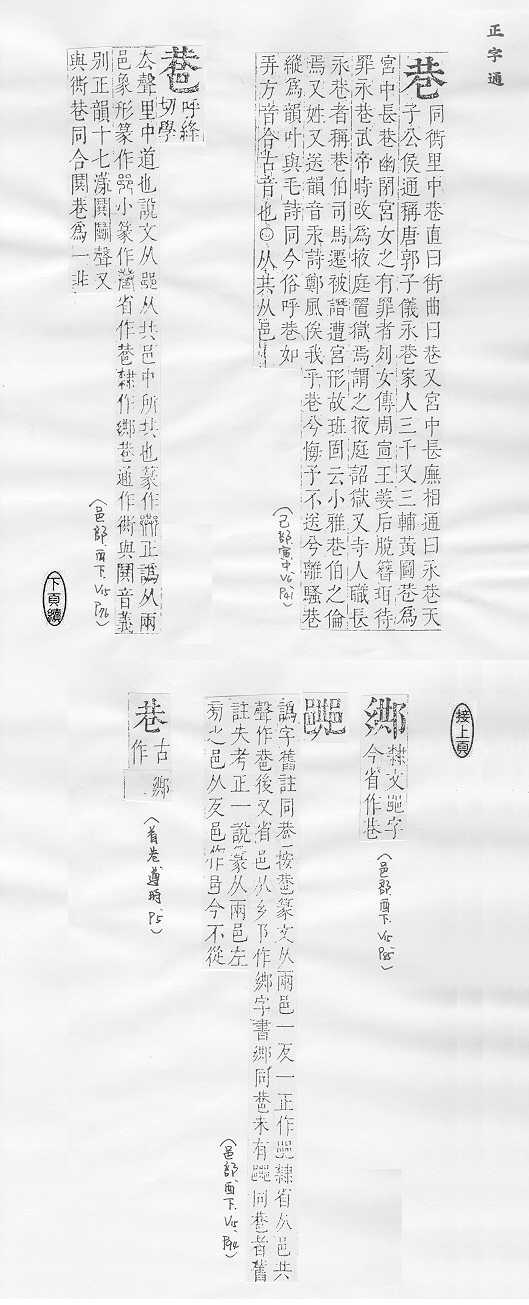 正字通
巷 同衖里中巷直曰街曲曰巷又宮中長廡相通曰永巷天
子公侯通稱唐郭子儀永巷家人三千又三輔黃圖巷爲
宮中長巷幽閉宮女之有罪者列女傳周宣王姜后脫簪珥待
罪永巷武帝時改爲掖庭置獄焉謂之掖庭詔獄又寺人職長
永巷者稱巷伯司馬遷被譖遭宮刑故班固云小雅巷伯之倫
焉又姓又送韻音汞詩鄭風俟我乎巷兮悔予不送兮離騷巷
縱爲韻叶與毛詩同今俗呼巷如
弄方音合古音也○从共从邑
(己部寅中.V6.P41)
呼絳
切學
去聲里中道也說文从𨛜从共邑中所共也篆作正譌从兩
邑象形篆作小篆作省作巷隸作鄉巷通作衖與鬨音義
別正韻十七漾鬨鬭聲又
與衖巷同合鬨巷爲一非
(邑部酉下.V15.P76)
下頁續
接上頁
隸文𨛜字
今省作巷
(邑部酉下.V15.P85)
𨛜
譌字舊註同巷按巷篆文从兩邑一反一正作隸省从邑共
聲作巷後又省邑从乡乃作鄉字書鄉同巷未有同巷者舊
註失考正一說篆从兩邑左
旁之邑从反邑作今不從
(邑部酉下.V15.P94)
巷 古
作
(首卷遵時.P5)